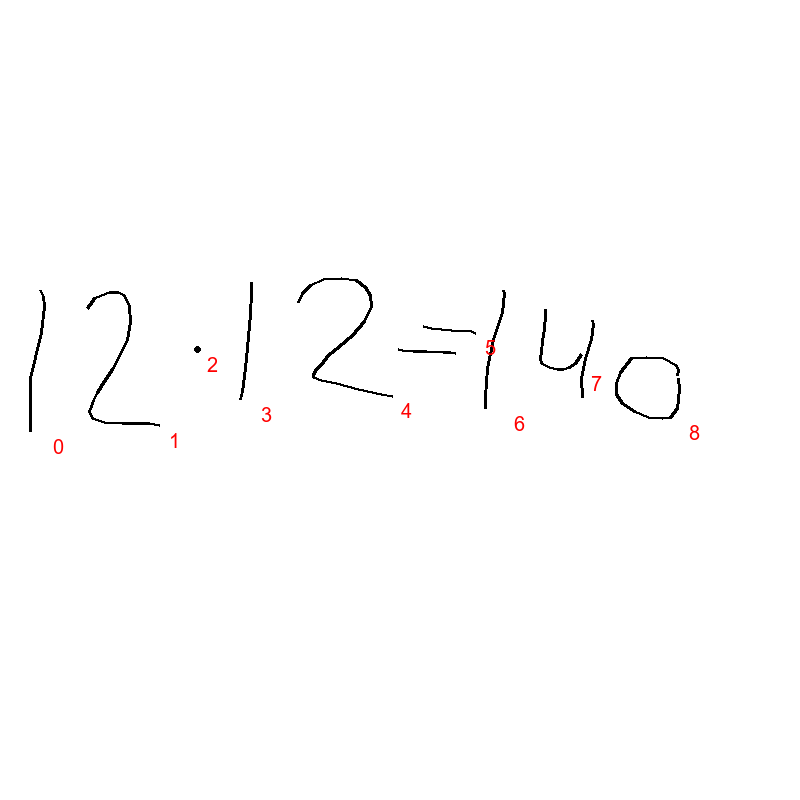 12·12=140
0 1 2 3 4 5 6 7 8